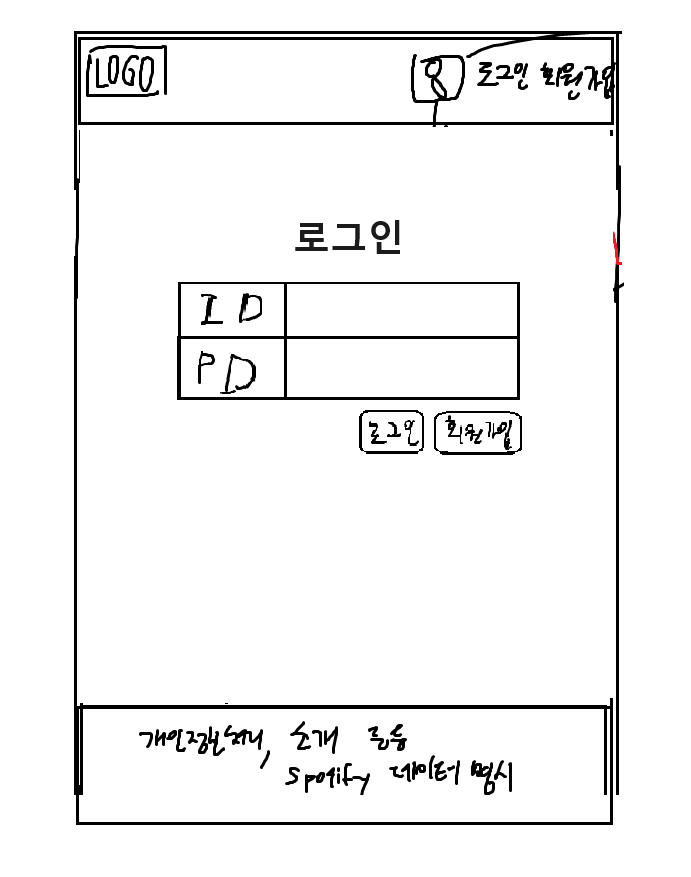 LOGO
로그인 회원가입
로그인
ID
PD
로그인 회원가입
소개 등등
Spotify 데이터 명시